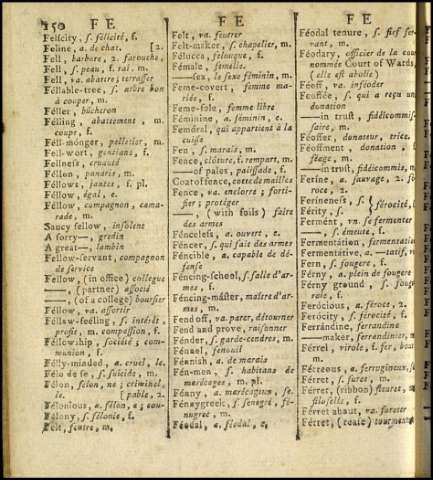 250 F E
Felicity, s. félicité, f.
Feline, a. de chat. [2.
Fell, barbare, 2. farouche,
Fell, s. peau, f. rai. m.
Fell, va. abattre; terrasser
Féllable-tree, s. arbre bon
à couper, m.
Féller, bûcheron
Félling, abattement, m.
coupe, f.
Fell-mónger, pelletier, m.
Fell-wort, gentiane, f.
Fellness, cruauté
Féllon, panaris, m.
Féllows, jantes, f. pl.
Féllow, égal, e.
Féllow, compagnon, cama-
rade, m.
Saucy fellow, insolent
A sorry—, gredin
A great—, lambin
Fellow-servant, compagnon
de service
Fellow, (in office) collegue
—, (partner) associé
—, (of a college) boursier
Féllow, va. assortir
Féllow-feeling, s. intérêt
profit, m. compassion, f.
Féllowship, société; com-
munion, f.
Félly-minded, a. cruel, le.
Félo de se, s. suicide, m.
Félon, félon, ne; criminel,
le. [pable, 2.
Félonious, a. félon, e; cou-
Félony, s. félonie, f.
Felt, feutre, m.
F E
Felt, va. feutrer
Felt-maker, s. chapelier, m.
Félucca, felouque, f.
Fémale, femelle.
—sex, le sexe féminin, m.
Feme-covert, femme ma-
riée,
Feme-sole, femme libre
Féminine, a. féminin, e.
Femóral, qui appartient à la
cuisse
Fen, s. marais, m.
Fence, clôture, f. rempart, m.
—of pales, palissade, f.
Coat of fence, cotte de mailles
Fence, va. enclorre; forti-
fier; protéger
—, (with foils) faire
des armes
Fénceless, a. ouvert, e.
Féncer, s. qui fait des armes
Féncible, a. capable de dé-
fense
Féncing-school, s. salle d'ar-
mes, f.
Féncing-máster, maître d'ar-
mes, m.
Fend off, va. parer, détourner
Fend and prove, raisonner
Fénder, s. garde-cendres, m.
Fénnel, fenouil
Fénnish, a. de marais
Fén-men, s. habitans de
marécages, m. pl.
Fénny, a. marécageux, se.
Fénnygreek, s. senegré, fé-
nugrec, m.
Féodal, a. féodal, e,
F E
Féodal tenure, s. fief ser-
vant, m.
Féodary, officer de la cour
nommée Court of Wards,
(elle est abolie)
Féoff, va. infféoder
Feoffée, s. qui a reçu un
donation
—in trust, fidécommis-
saire, m.
Féoffer, donateur, trice.
Féoffment, donation,
féage, m.
—in trust, fidécommis, m
Ferine, a. sauvage, 2. fé-
roce, 2.
Ferineness, s. } férocité,
Férity, s.
Fermént, va. se fermenter
—, s. émeute, f.
Fermentátion, fermentation
Fermentative, a.—tatif,
Fern, s. fougere, f.
Férny, a. plein de fougere
Férny ground, s. foug
raie, f.
Feró​cious, a. féroce, 2.
Ferócity, s. férocité, f.
Ferrándine, ferrandine
—maker, ferrandinier,
Férrel, virole, f. fer, bout
m.
Férreous, a. ferrugineux,
Férret, s. furet, m.
Férret, (ribbon) fleuret,
filoselle, f.
Férret abaut, va. fureter
Férret, (teaze) tourment